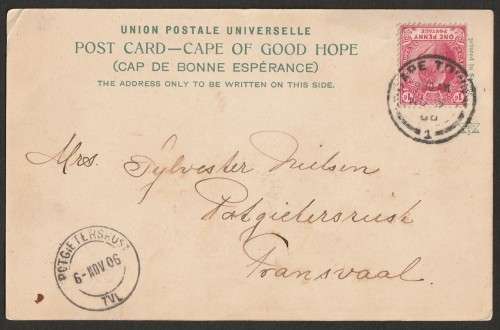 UNION POSTALE UNIVERSELLE
POST CARD—CAPE OF GOOD HOPE
(CAP DE BONNE ESPÉRANCE)
THE ADDRESS ONLY TO BE WRITTEN ON THIS SIDE.
ONE PENNY
POSTAGE
CAPE TOWN
06
1
Mrs. Sylvester Nielsen
Potgietersrust
Transvaal
POTGIETERSRUST
6-NOV 06
TVL